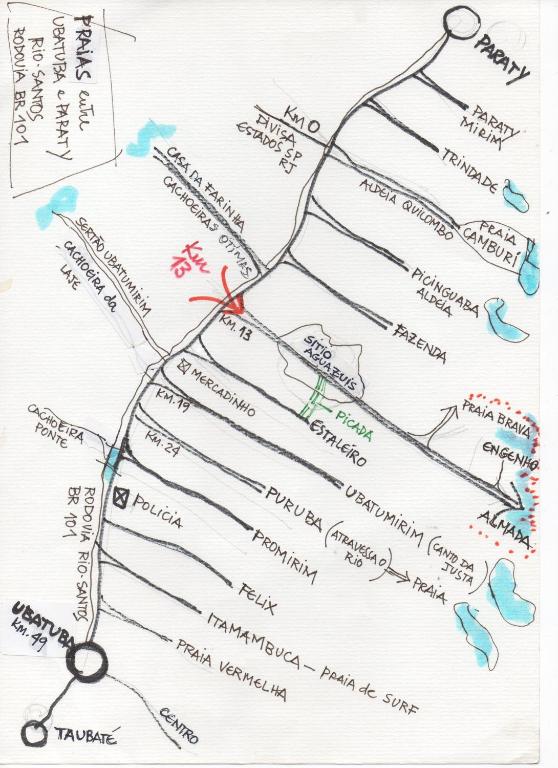 PRAIAS entre
UBATUBA e PARATY
RIO-SANTOS
RODOVIA BR 101
PARATY
PARATY
MIRIM
TRINDADE
KM 0
DIVISA
ESTADOS SP
RJ
ALDEIA QUILOMBO
PRAIA
CAMBURÍ
CASA DA FARINHA
CACHOEIRAS OTIMAS
PICINGUABA
ALDEIA
FAZENDA
SERTÃO UBATUMIRIM
CACHOEIRA da
LAJE
Km
13
KM. 13
SITIO
AGUAZUIS
PICADA
ESTALEIRO
PRAIA BRAVA
ENGENHO
ALMADA
MERCADINHO
KM. 19
UBATUMIRIM (CANTO DA
JUSTA)
CACHOEIRA
PONTE
KM. 24
PURUBA (ATRAVESSA O
RIO) PRAIA
POLICIA
PROMIRIM
RODOVIA RIO-SANTOS
BR 101
FELIX
ITAMAMBUCA - PRAIA de SURF
PRAIA VERMELHA
UBATUBA
KM. 49
CENTRO
TAUBATÉ